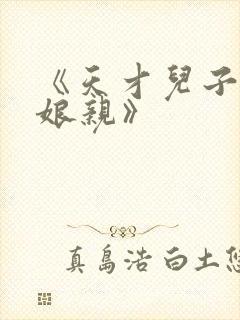 《天才兒子
娘親》
真島浩 白土悠